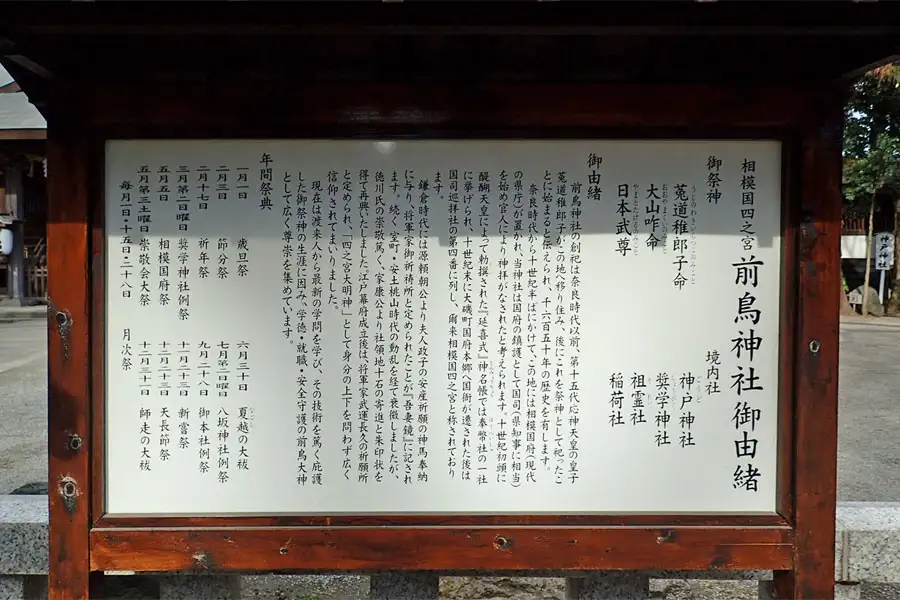 相模国四之宮 前鳥神社御由緒
御祭神
菟道稚郎子命
大山咋命
日本武尊
境内社
神戸神社
奨学神社
祖霊社
稲荷社
御由緒
前鳥神社の創祀は奈良時代以前、第十五代応神天皇の皇子
菟道稚郎子がこの地へ移り住み、後にこれを祭神として祀ったこ
とに始まると伝えられ、千六百五十年の歴史を有します。
奈良時代から十世紀半ばにかけて、この地には相模国府(現代
の県庁)が置かれ、当神社は国府の鎮護として国司(県知事に相当)
を始め官人らにより神拝がなされたと考えられます。十世紀初頭に
醍醐天皇によって勅撰された『延喜式』神名帳では奉幣社の一社
に挙げられ、十世紀末に大磯町国府本郷へ国衙が遷された後は
国司巡拝社の第四番に列し、爾来相模国四之宮と称されており
ます。
鎌倉時代には源頼朝公より夫人政子の安産祈願の神馬奉納
に与り、将軍家御祈祷所と定められたことが『吾妻鏡』に記され
ます。続く、室町・安土桃山時代の動乱を経て衰微しましたが、
徳川氏の崇敬篤く、家康公より社領地十石の寄進と朱印状を
得て再興いたしました。江戸幕府成立後は、将軍家武運長久の祈願所
と定められ、「四之宮大明神」として身分の上下を問わず広く
信仰されてまいりました。
現在は渡来人から最新の学問を学び、その技術を篤く庇護
した御祭神の生涯に因み、学徳・就職・安全守護の前鳥大神
として広く尊崇を集めています。
年間祭典
一月一日 歳旦祭 六月三十日 夏越の大祓
二月三日 節分祭 七月第二日曜日 八坂神社例祭
二月十七日 祈年祭 九月二十八日 御本社例祭
三月第二日曜日 奨学神社例祭 十一月二十三日 新嘗祭
五月五日 相模国府祭 十二月二十三日 天長節祭
五月第三土曜日 崇敬会大祭 十二月三十一日 師走の大祓
毎月一日・十五日・二十八日 月次祭